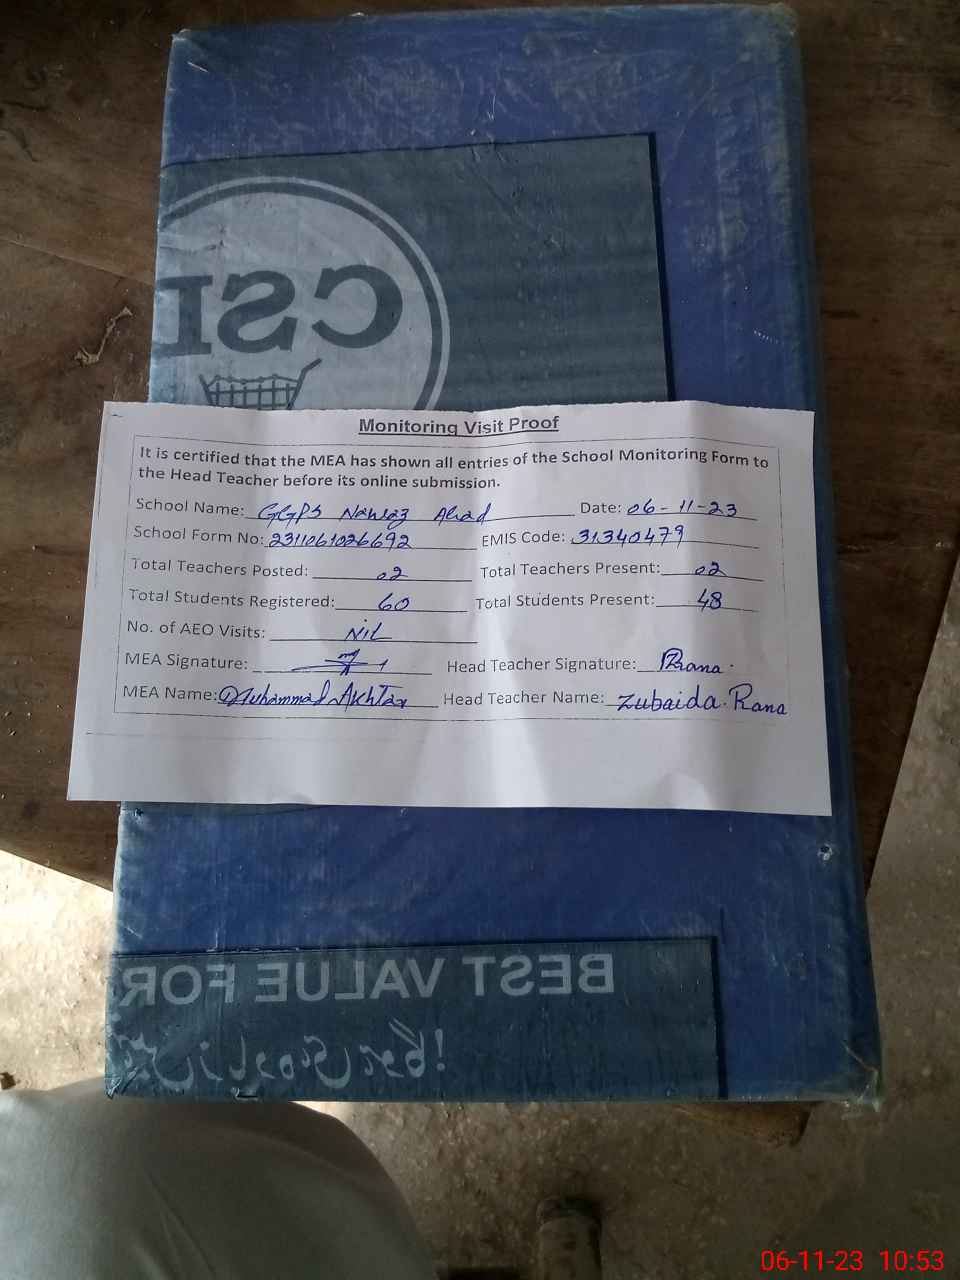 CSD
Monitoring Visit Proof
It is certified that the MEA has shown all entries of the School Monitoring Form to
the Head Teacher before its online submission.
School Name: GGPS Nawaz Abad Date: 06-11-23
School Form No: 2311061026692 EMIS Code: 31340479
Total Teachers Posted: 02 Total Teachers Present: 02
Total Students Registered: 60 Total Students Present: 48
No. of AEO Visits: NIL
MEA Signature: Head Teacher Signature: ZRana.
MEA Name: Muhammad Akhtar Head Teacher Name: Zubaida. Rana
BEST VALUE FOR
06-11-23 10:53